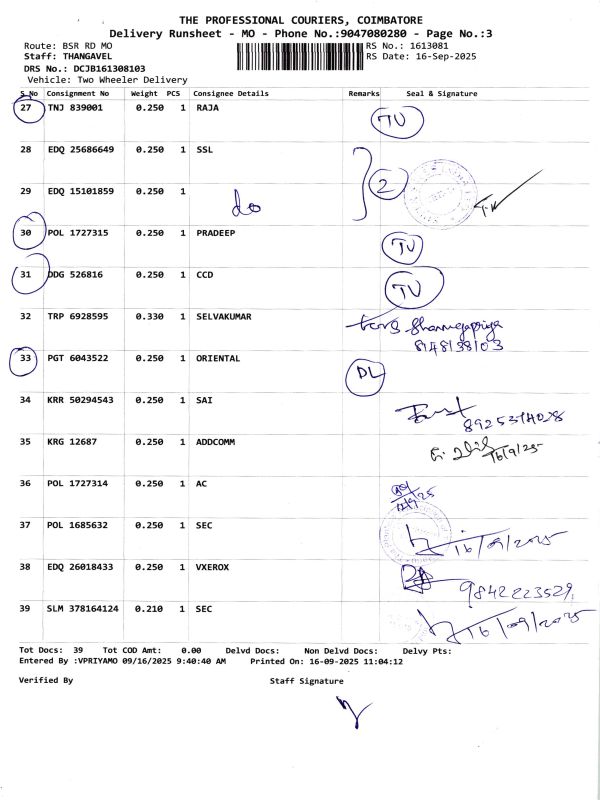 THE PROFESSIONAL COURIERS, COIMBATORE
Delivery Runsheet - MO - Phone No.:9047080280 - Page No.:3
Route: BSR RD MO RS No.: 1613081
Staff: THANGAVEL RS Date: 16-Sep-2025
DRS No.: DCJB161308103
Vehicle: Two Wheeler Delivery
S_No Consignment No Weight PCS Consignee Details Remarks Seal & Signature
27 TNJ 839001 0.250 1 RAJA TU
28 EDQ 25686649 0.250 1 SSL
2
29 EDQ 15101859 0.250 1 do
30 POL 1727315 0.250 1 PRADEEP TU
31 DDG 526816 0.250 1 CCD TU
32 TRP 6928595 0.330 1 SELVAKUMAR
33 PGT 6043522 0.250 1 ORIENTAL DL
34 KRR 50294543 0.250 1 SAI
35 KRG 12687 0.250 1 ADDCOMM 16/9/25
36 POL 1727314 0.250 1 AC
37 POL 1685632 0.250 1 SEC 16/09/2025
38 EDQ 26018433 0.250 1 VXEROX 9842223529
39 SLM 378164124 0.210 1 SEC 16/09/2025
Tot Docs: 39 Tot COD Amt: 0.00 Delvd Docs: Non Delvd Docs: Delvy Pts:
Entered By :VPRIYAMO 09/16/2025 9:40:40 AM Printed On: 16-09-2025 11:04:12
Verified By Staff Signature